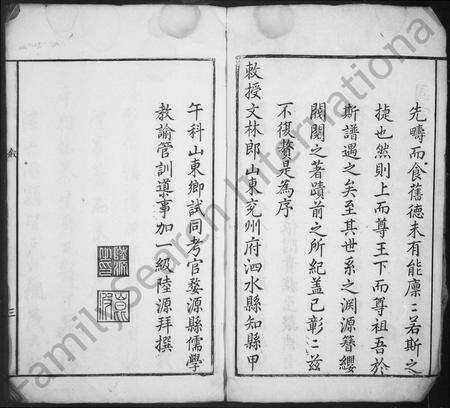 先疇而食舊德未有能廩〻若斯之
捷也然則上而尊王下而尊祖吾於
斯譜遇之矣至其世系之淵源簪纓
閥閱之著蹟前之所紀盖已彰〻茲
不復贅是為序
敕授文林郎山東兗州府泗水縣知縣甲
午科山東鄉試同考官婺源縣儒學
教諭管訓導事加一級陸源拜撰
敘
三
FamilySearch International